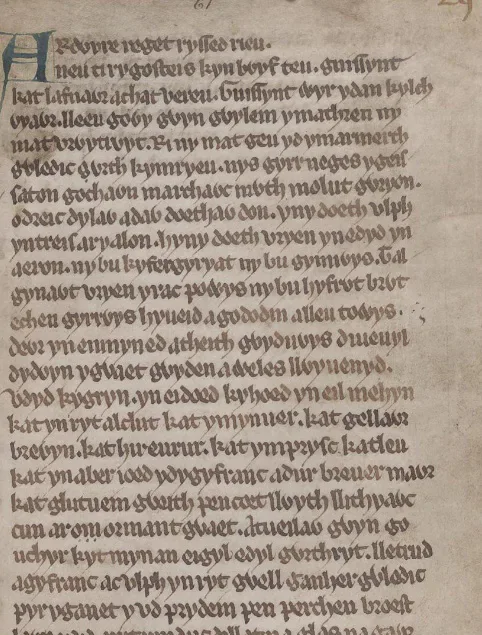 ARdvyre reget ryssed rieu.
neu ti rygosteis kyn bvyf teu. guissynt
kat lafnavr achat vereu. Guissynt vyr ydan kylch
vyavr. lleeu gvy gvyn gvylem ymachren ny
mat vrvytrvyt. Ri ny mat geu yd ymarmerth
gvledic gvrth kymryeu. nys gyrr neges ygeis
saton gochavn marchavc mvth molut gvryon.
odreic dylav adav doethav don. yny doeth vlph
yn treis ar y alon. hyny doeth vryen yn edyd yn
aeron. ny bu kyfergyryat ny bu gynnvys. Tal
gynavt vryen yrac povys ny bu hyfrvt brvt
echen gyrrvys hyueid a gododin a lleu towys.
devr yn enmyned atheith gvyduvys diueuyl
dydvyn ygvaet gvyden a weles llvyuenyd.
vdyd kygryn. yn eidoed kyhoed yn eil mehyn
kat yn ryt alclut kat ymynuer. kat gellavr
brevyn. kat hireurur. kat ymprysc katleu
kat yn aber ioed ydygyfranc adur breuer mavr
kat glutuein gveith pencoet llvyth llithyavc
cun ar orniant gvaet. Atueilav gvyn go
uchyr kyt mynan eigyl edyl gvrthryt. lletrud
a gyfranc ac vlph yn ryt gvell ganher gvledic
pyr y ganet y vd prydein pen perchen broest